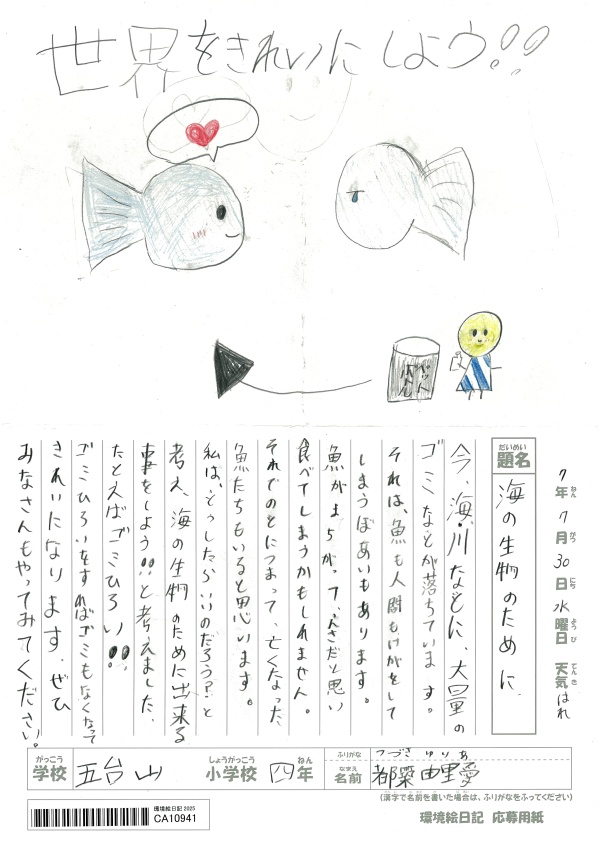 世界をきれいにしよう!!
ペットボトル
7年7月30日水曜日 天気はれ
ねん がつ にち ようび てんき
だいめい
題名
海の生物のために
今、海・川などに、大量の
ゴミなどが落ちています。
それは、魚も人間もけがをして
しまうばあいもあります。
魚がまちがって、えさだと思い
食べてしまうかもしれません。
それでのどにつまって、亡くなった
魚たちもいると思います。
私は、どうしたらいいのだろう?と
考え、海の生物のために出来る
事をしよう!!と考えました、
たとえばゴミひろい!!
ゴミひろいをすればゴミもなくなって
きれいになります。ぜひ
みなさんもやってみてください。
がっこう しょうがっこう ねん
学校 五台山 小学校 四年
ふりがな つづき ゆりあ
なまえ
名前 都築 由里愛
(漢字で名前を書いた場合は、ふりがなをふってください)
環境絵日記 2025
CA10941
環境絵日記 応募用紙